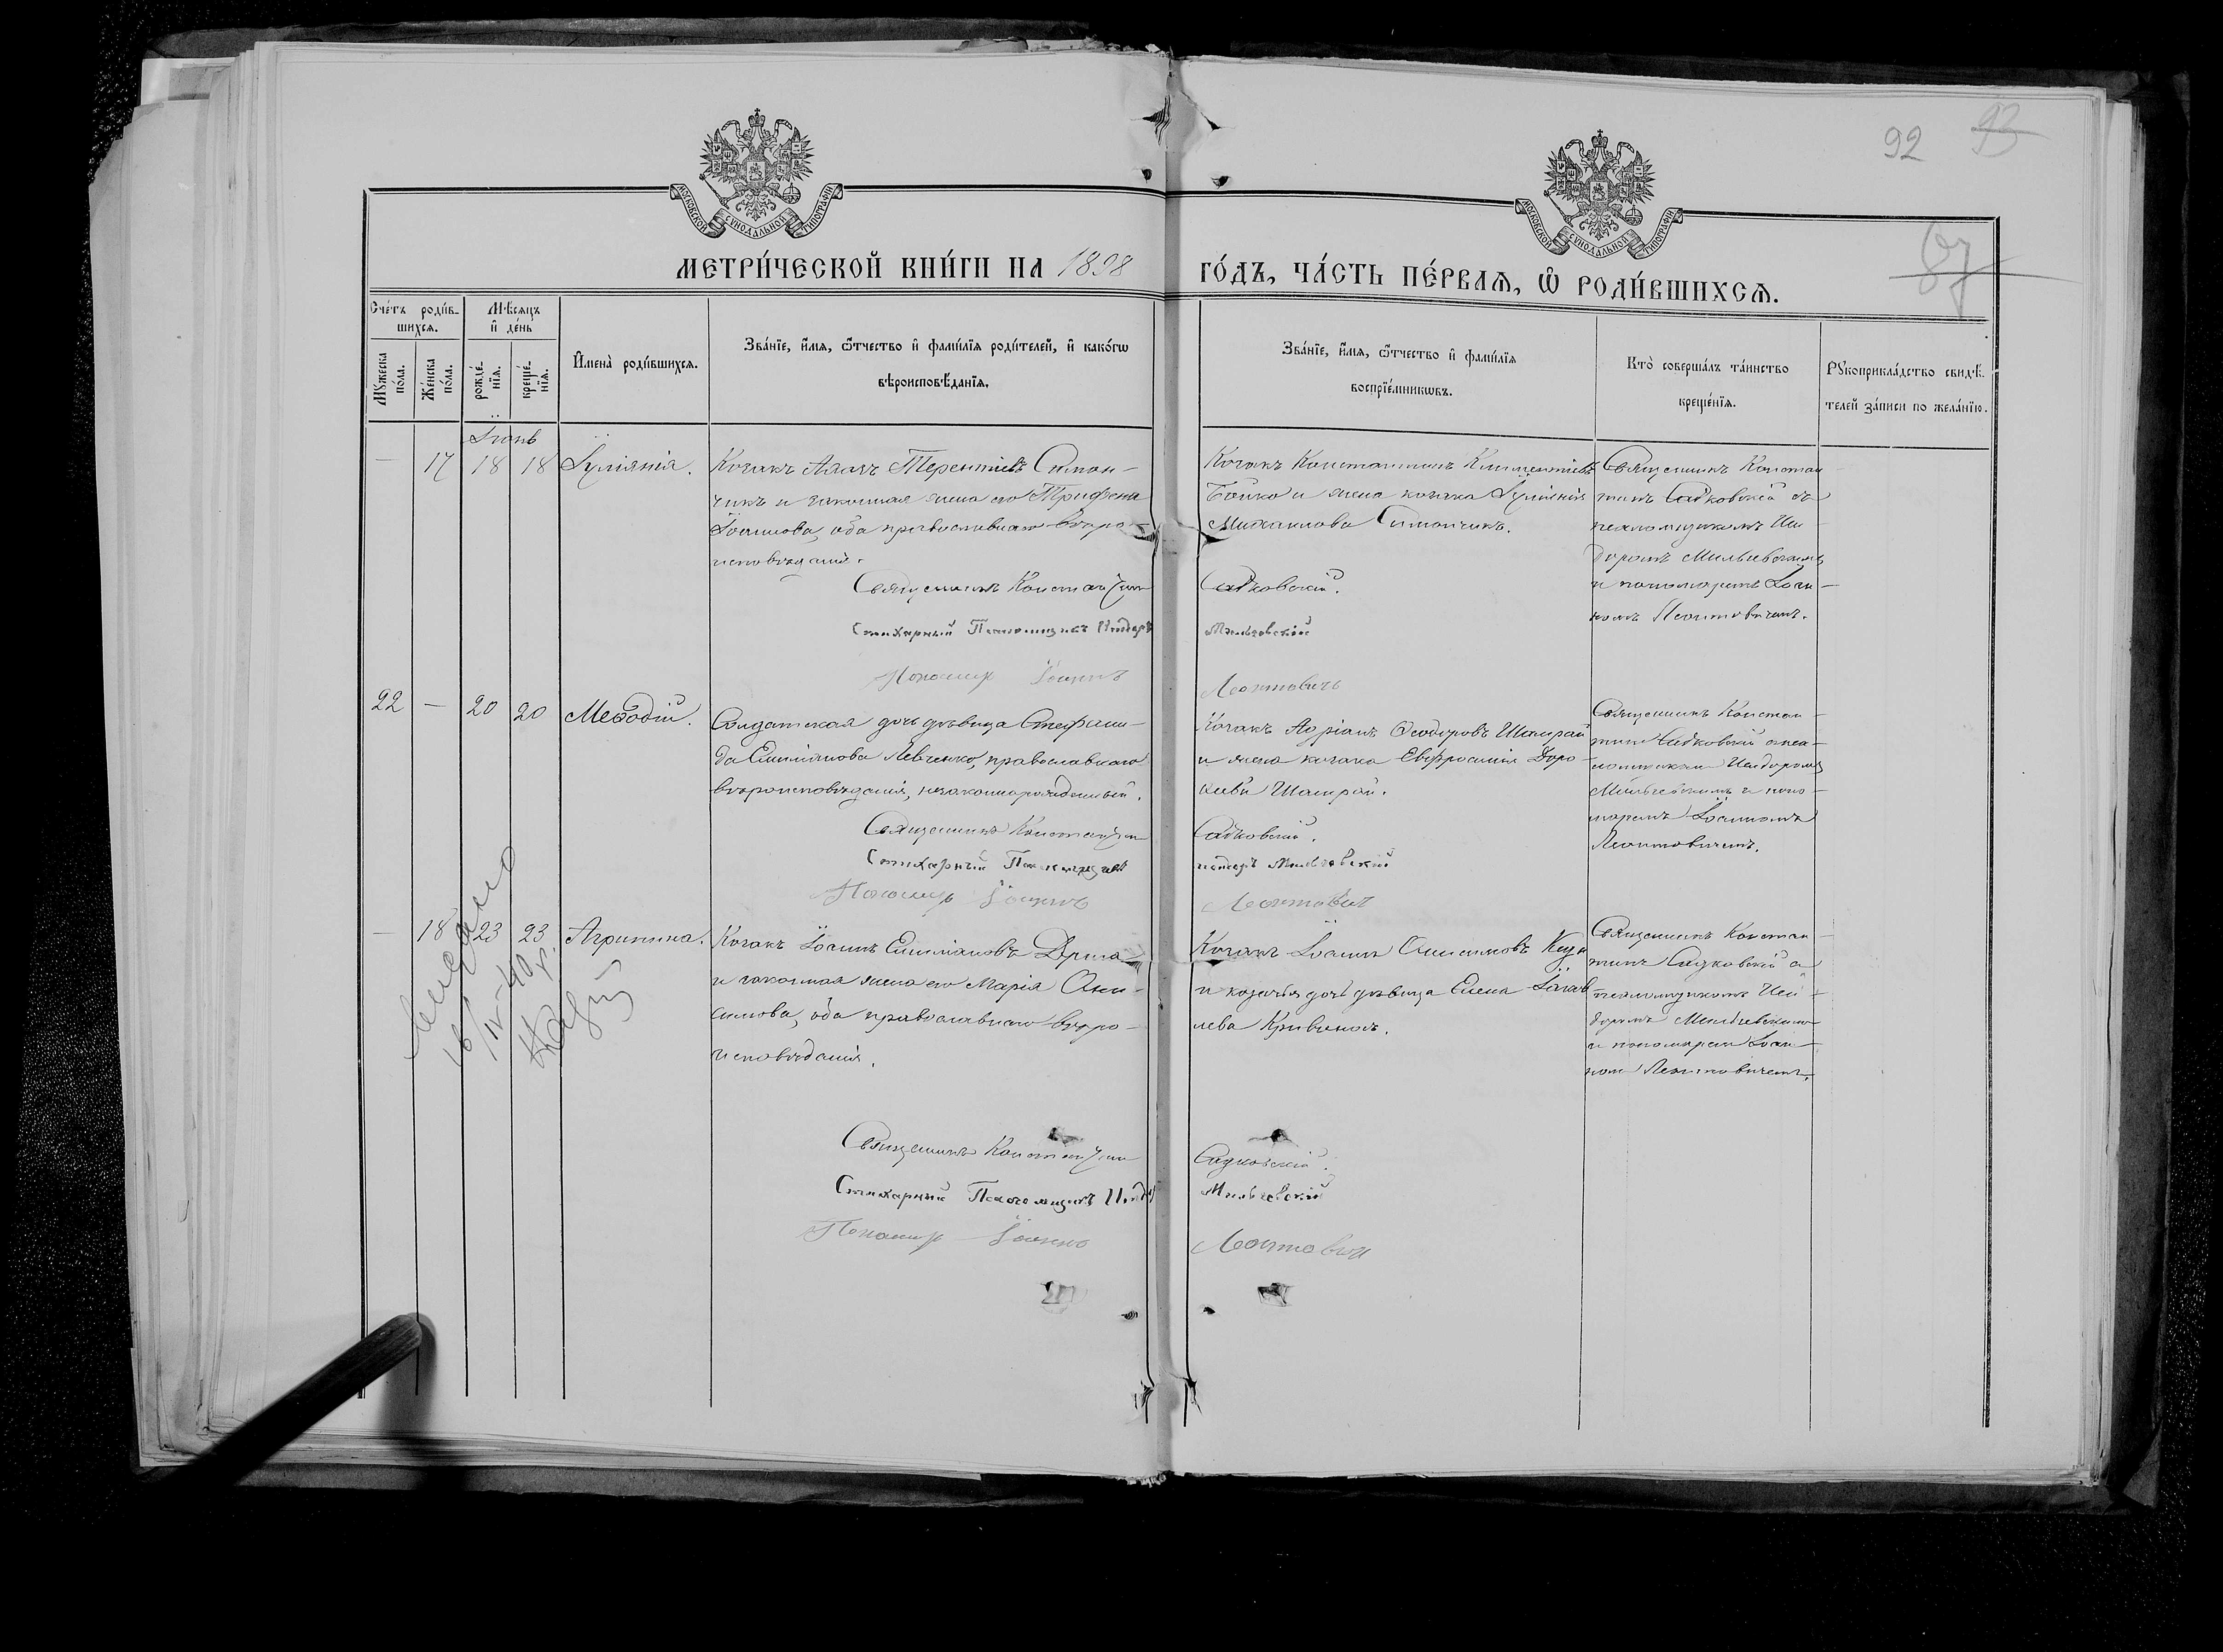 92 93
87
МОСКОВСКОЙ СУНОДАЛЬНОЙ ТИПОГРАФІИ
МОСКОВСКОЙ СУНОДАЛЬНОЙ ТИПОГРАФІИ
МЕТРИ́ЧЕСКОЙ КНИ́ГИ НА 1898
ГО́ДЪ, ЧА́СТЬ ПЕ́РВАѦ, Ѡ҆ РОДИ́ВШИХСѦ.
Сче́тъ роди́в-
шихсѧ.
Мѣ́сѧцъ
и҆ де́нь
Мꙋ́жеска
по́ла.
Же́нска
по́ла.
рожде́-
нїѧ.
креще́-
нїѧ.
И҆мена̀ роди́вшихсѧ.
Зва́нїе, и҆́мѧ, ѻ҆́тчество и҆ фами́лїѧ роди́телей, и҆ како́гѡ
вѣроисповѣ́данїѧ.
Зва́нїе, и҆́мѧ, ѻ҆́тчество и҆ фами́лїѧ
воспрїе́мникѡвъ.
Кто̀ соверша́лъ та́инство
креще́нїѧ.
Рꙋкоприкла́дство свидѣ́-
телей за́писи по жела́нїю.
Іюнь
— 17 18 18 Іуліянія.
Козакъ Терентіевъ Симон-
чикъ и законная жена его Трифена
Іоаннова, оба православнаго веро-
исповеданія.
Священникъ Константин
Стихарный Псаломщикъ Исидоръ
Пономарь Іоаннъ
Козакъ Константинъ Климентіевъ
Бойко и жена козака Іуліянія
Михаилова Симончикъ.
Садковскій.
Мильчевскій
Леонтовичъ
Священникъ Констан-
тинъ Садковскій съ
псаломщикомъ Иси-
доромъ Мильчевскимъ
и пономаремъ Іоан-
номъ Леонтовичемъ.
22 — 20 20 Меѳодій.
Солдатская дочь девица Стефани-
да Емиліянова Левченко, православнаго
вероисповеданія, незаконнорожденный.
Священникъ Константин
Стихарный Псаломщикъ
Пономарь Іоаннъ
Козакъ Адріанъ Ѳеодоровъ Шапрай
и жена козака Евфросинія Доро-
ѳеева Шапрай.
Садковскій.
Исидоръ Мильчевскій
Леонтович
Священникъ Констан-
тин Садковскій с пса-
ломщиком Исидоромъ
Мильчевскимъ и поно-
маремъ Іоанномъ
Леонтовичемъ.
— 18 23 23 Агрипина.
Козакъ Іоаннъ Емиліановъ
и законная жена его Марія Они-
симова, оба православнаго веро-
исповеданія.
Священникъ Константин
Стихарный Псаломщикъ Исидоръ
Пономарь Іоаннъ
Козакъ Іоаннъ Онисимовъ
и козачья дочь девица Елена Іаков-
лева Кривенокъ.
Садковскій.
Мильчевскій
Леонтович
Священникъ Констан-
тинъ Садковскій с
псаломщикомъ Иси-
доромъ Мильчевскимъ
и пономарем Іоан-
ном Леонтовичемъ.
16/IV-40 г.